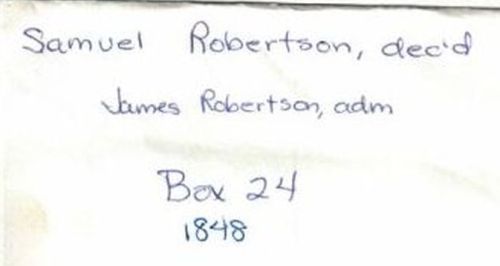 Samuel Robertson, dec'd
James Robertson, adm
Box 24
1848